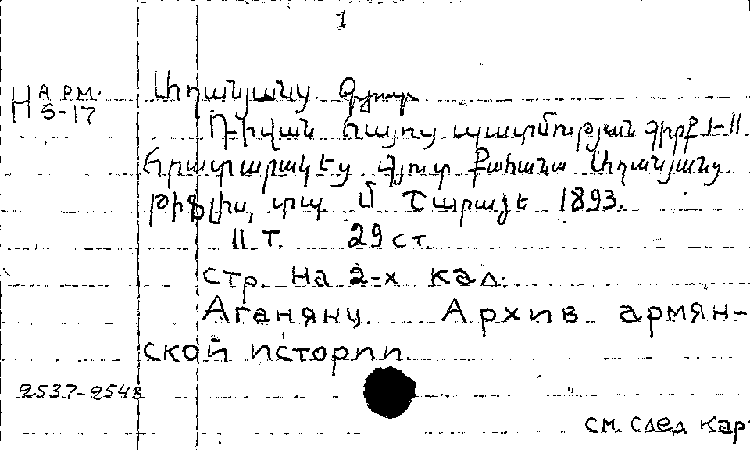 1
Н АРМ.
5-17
Աղանյանց Գյուտ
Դիվան հայոց պատմության գիրք I-II
Հրատարակեց Գյուտ Քահանա Աղանյանց
Թիֆլիս, տպ Մ Շարաձե 1893.
II т. 29 ст.
стр. на 2-х кал.
Аганянц Архив армян-
ской истории
2537-2548
см. след кар